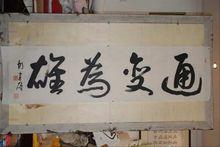 通变為雄